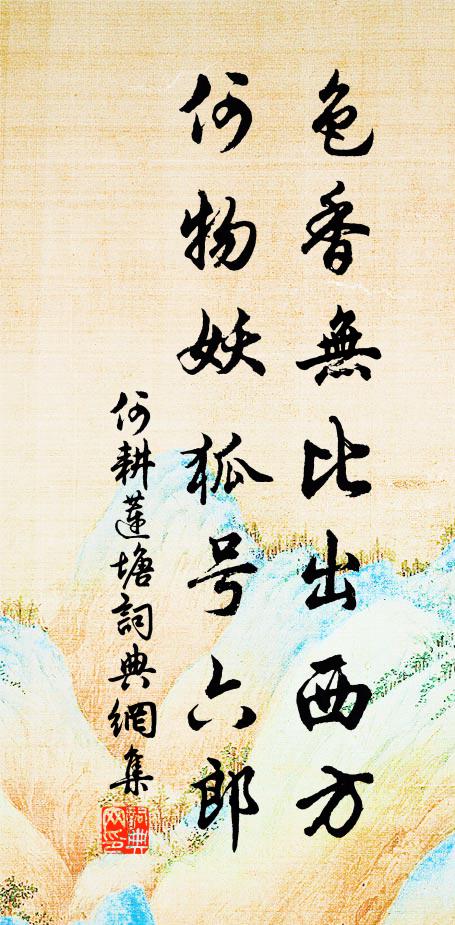 色香無比出西方
何物妖狐号六郎
何耕蓮塘詞典網集